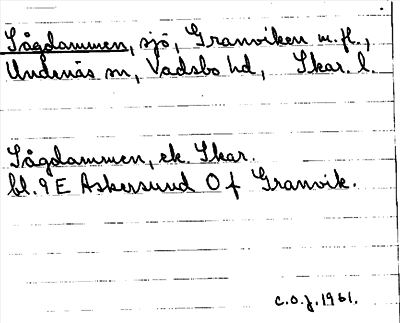 Sågdammen, sjö, Granviken m.fl.,
Undenäs sn, Vadsbo hd, Skar. l.
Sågdammen, ek. Skar.
bl. 9 E Askersund O f Granvik.
c.o.j. 1961.